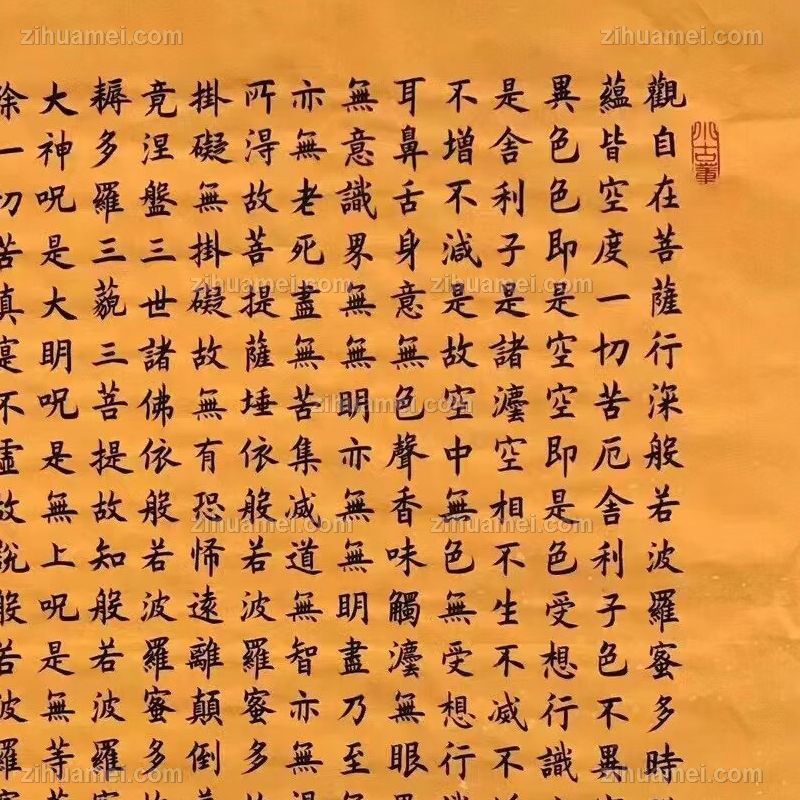 觀自在菩薩行深般若波羅蜜多時
蘊皆空度一切苦厄舍利子色不異
異色色即是空空即是色受想行識
是舍利子是諸灋空相不生不滅不
不增不減是故空中無色無受想行
耳鼻舌身意無色聲香味觸灋無眼
無意識界無無明亦無無明盡乃至
亦無老死盡無苦集滅道無智亦無
所得故菩提薩埵依般若波羅蜜多
掛礙無掛礙故無有恐怖遠離顛倒
竟涅盤三世諸佛依般若波羅蜜多
耨多羅三藐三菩提故知般若波羅
大神呪是大明呪是無上呪是無等
除一切苦真寔不虛故說般若波羅
小古董
zihuamei.com
zihuamei.com
zihuamei.com
zihuamei.com
zihuamei.com
zihuamei.com
zihuamei.com
zihuamei.com
zihuamei.com
zihuamei.com
zihuamei.com